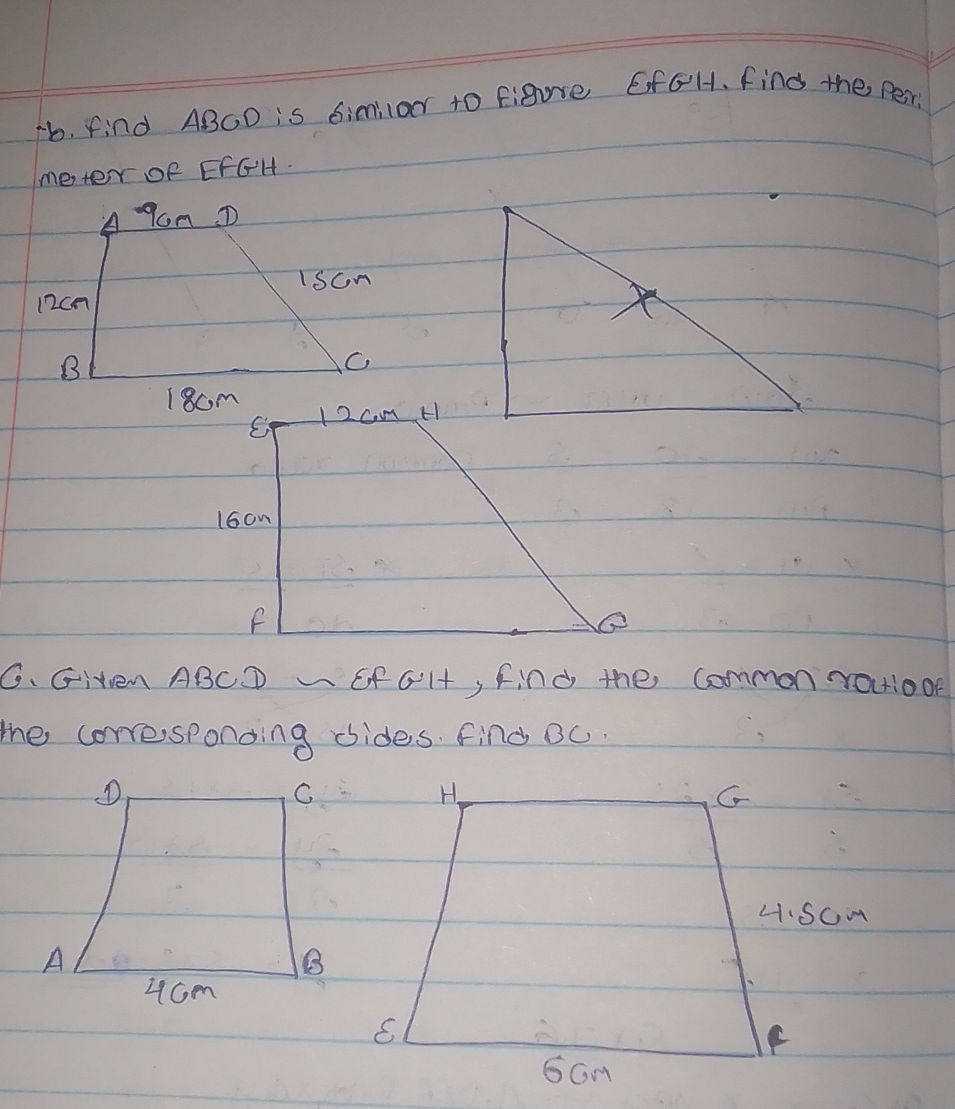 b. find ABCD is similar to figure EFGH. find the peri
meter of EFGH.
A 9cm D
15cm
12cm
B
C
18cm
E 12cm H
16cm
F
G
C. Given ABCD ~ EFGH, find the common ratio of
the corresponding sides. find BC.
D C H G
4.5cm
A B
4cm
E F
6cm